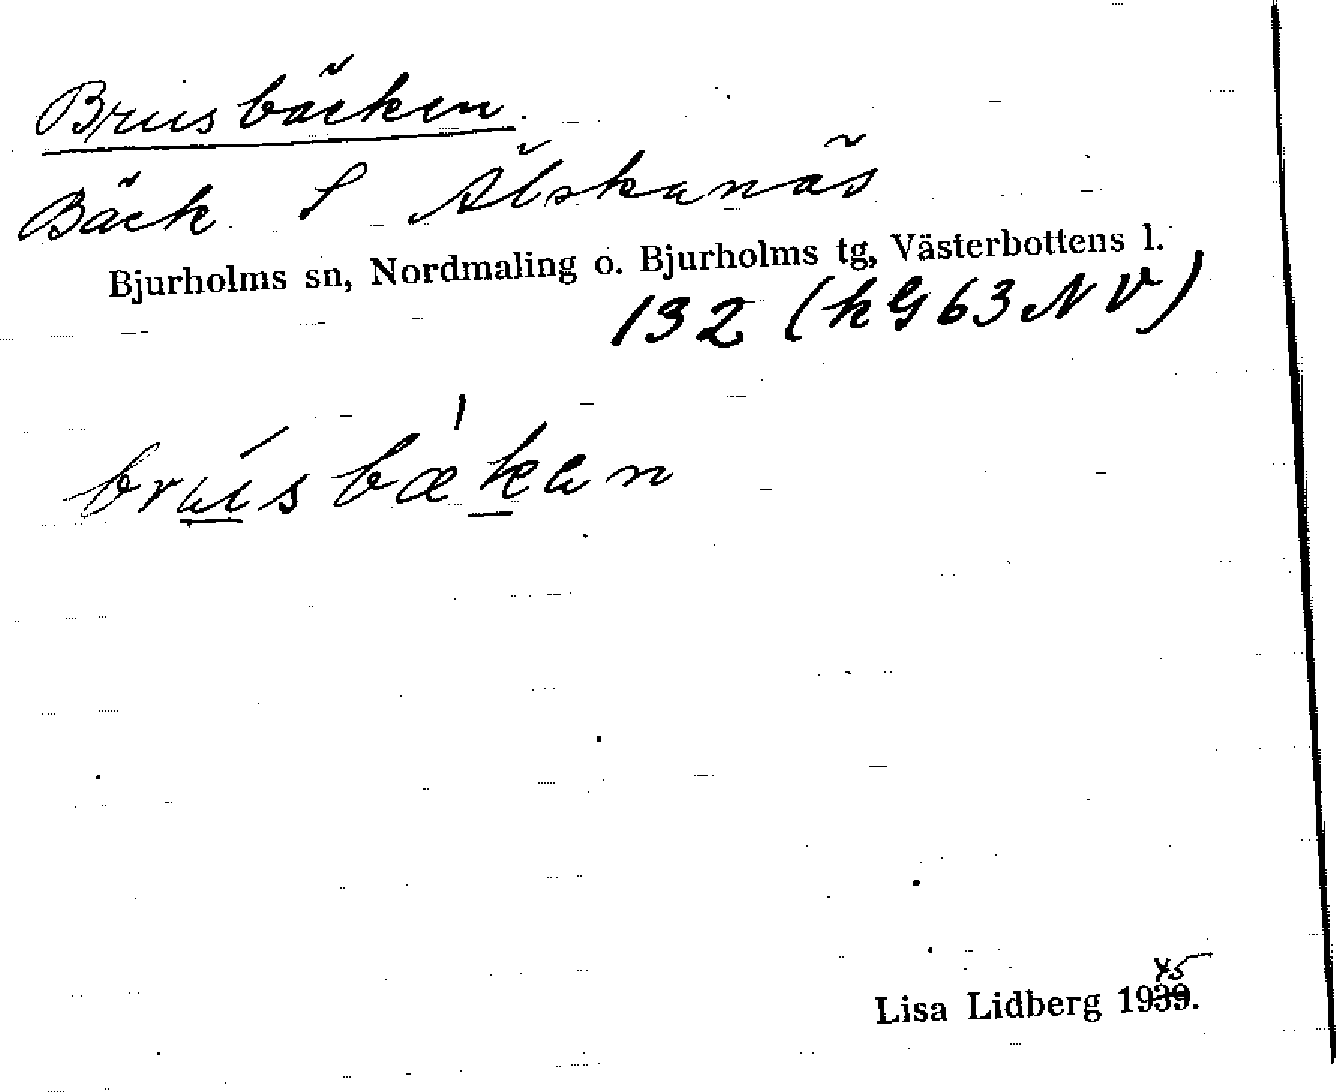 Brusbäcken.
Bäck S Älskanäs
Bjurholms sn, Nordmaling o. Bjurholms tg, Västerbottens l.
132 (kG63NV)
Lisa Lidberg 1945.